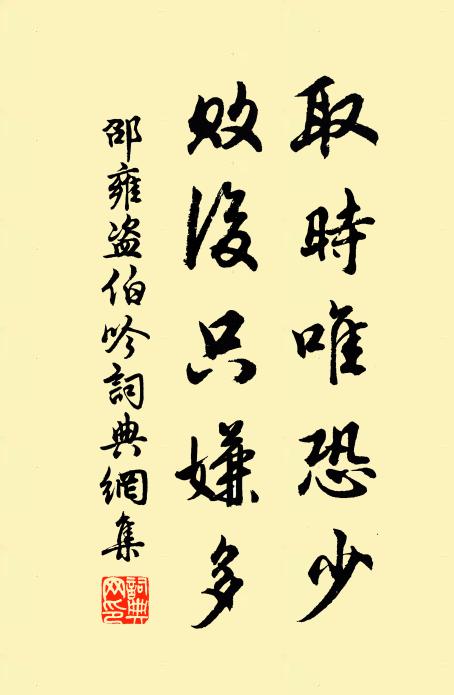 取時唯恐少
敗後只嫌多
邵雍盗伯吟詞典網集
詞典网印